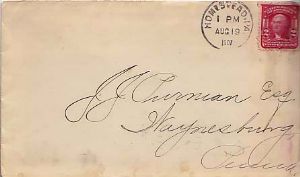 HOMESTEAD, PA.
1 PM
AUG 19
J J Purman Esq
Waynesburg
Penna.